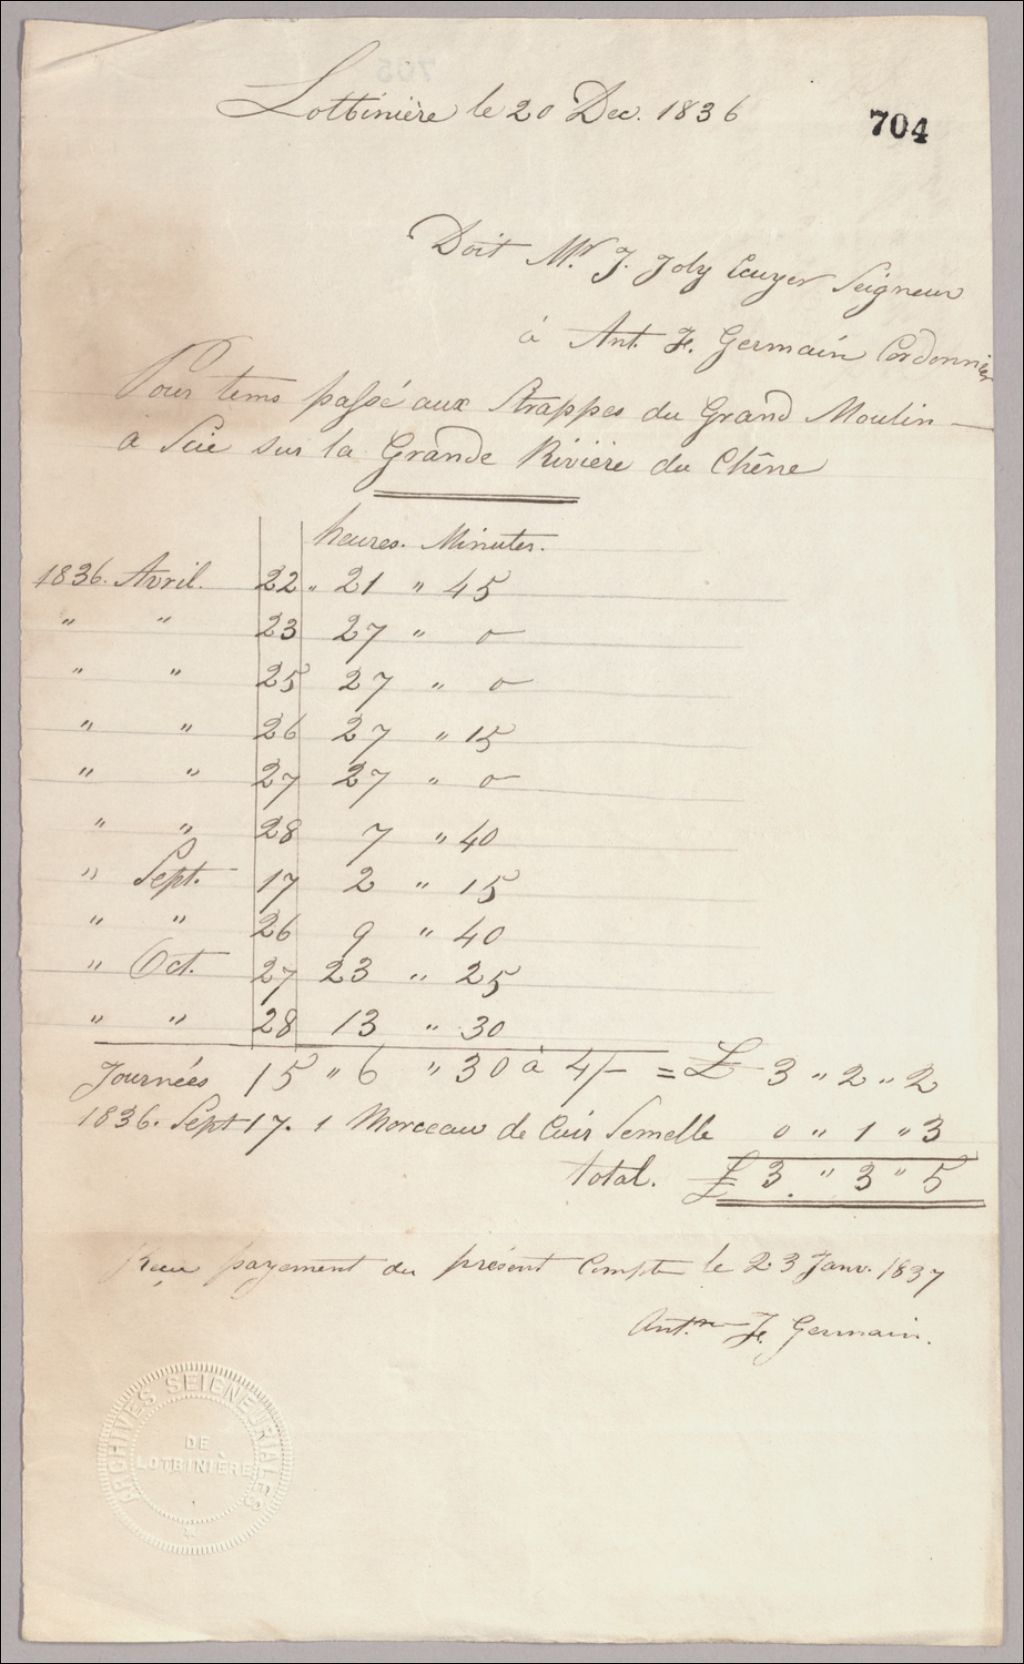 Lotbinière le 20 Dec. 1836
704
Doit Mr. J. Joly Ecuyer Seigneur
à Ant. F. Germain Cordonnier
Pour tems passé aux Strappes du Grand Moulin
a Scie sur la Grande Rivière du Chêne
heures. Minutes.
1836. Avril. 22 " 21 " 45
" " 23 27 " 0
" " 25 27 " 0
" " 26 27 " 15
" " 27 27 " 0
" " 28 7 " 40
" Sept. 17 2 " 15
" " 26 9 " 40
" Oct. 27 23 " 25
" " 28 13 " 30
Journées 15 " 6 " 30 à 4/- = £ 3 " 2 " 2
1836. Sept 17. 1 Morceau de Cuir Semelle 0 " 1 " 3
total. £ 3. " 3 " 5
Reçu payement du présent Compte le 23 Janv. 1837
Ant.ne F. Germain.
ARCHIVES SEIGNEURIALES
DE
LOTBINIÈRE